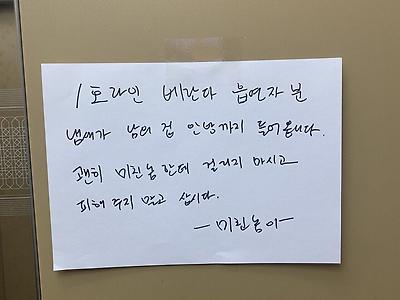 1호라인 베란다 흡연자분
냄새가 남의 집 안방까지 들어옵니다.
괜히 미친놈한테 걸리지 마시고
피해주지 말고 삽시다.
- 미친놈이 -